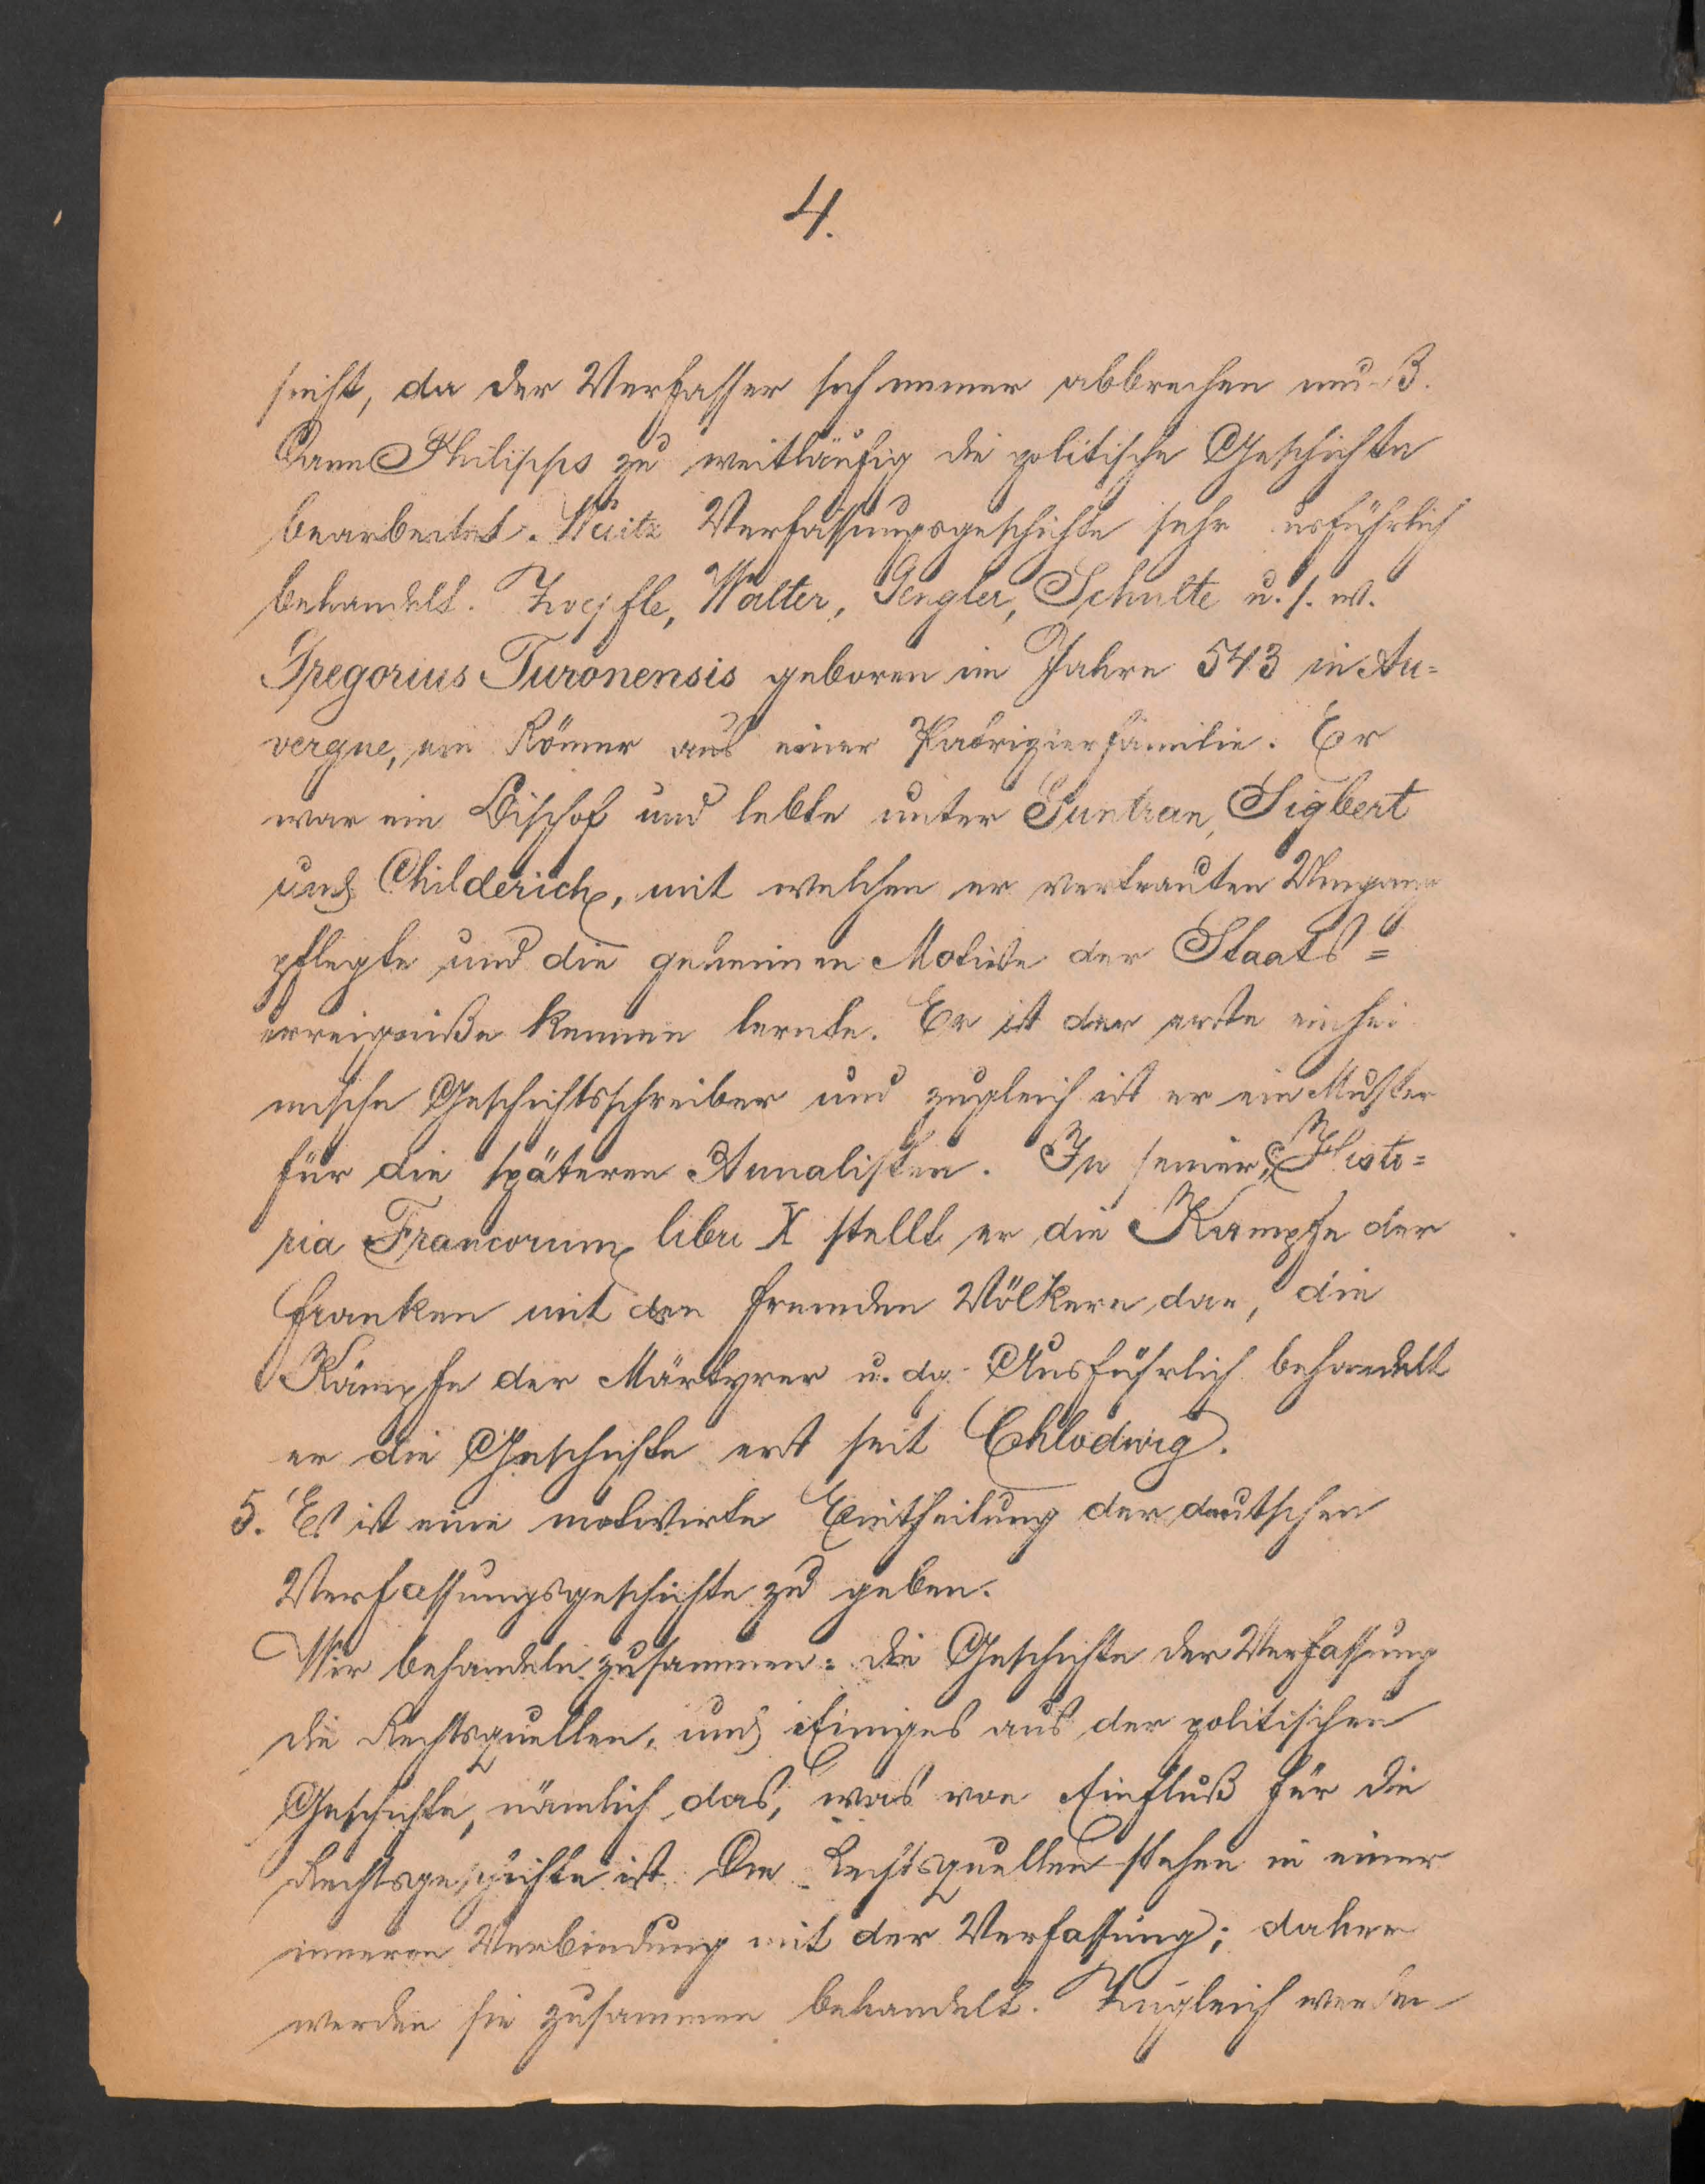 4.
sicht, da der Verfasser sich immer abbrechen muß.
Dann Philipps zu weitläufig die politische Geschichte
bearbeitet. Waitz Verfassungsgeschichte sehr ausführlich
behandelt. Zoepfle, Walter, Gengler, Schulte u. s. w.
Gregorius Turonensis geboren im Jahre 543 in Au=
vergne, ein Römer aus einer Patrizierfamilie. Er
war ein Bischof und lebte unter Guntran, Sigbert
und Childerich, mit welchen er vertrauten Umgang
pflegte und die geheimen Motive der Staats=
erreigniße kennen lernte. Er ist der erste einhei
mische Geschichtsschreiber und zugleich ist er ein Muster
für die späteren Annalisten. In seiner „Histo=
ria Francorum libri X stellt er die Kampfe der
Franken mit den fremden Völkern dar, die
Kämpfe der Märtyrer u. dg. Ausführlich behandelt
er die Geschichte erst seit Chlodwig.
5. Es ist eine motivirte Eintheilung der deutschen
Verfassungsgeschichte zu geben.
Wir behandeln zusammen: die Geschichte der Verfassung
die Rechtsquellen, und Einiges aus der politischen
Geschichte, nämlich das, was von Einfluß für die
Rechtsgeschichte ist. Die Rechtsquellen stehen in einer
inneren Verbindung mit der Verfassung; daher
werden sie zusammen behandelt. Zugleich werden